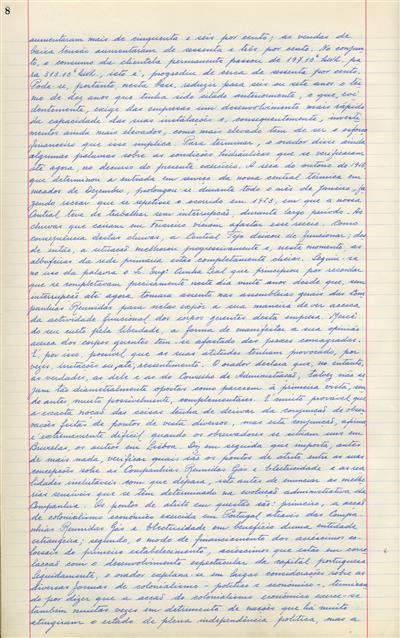 8
aumentaram mais de cinquenta e seis por cento; as vendas de
baixa tensão aumentaram de sessenta e três por cento. No conjun-
to, o consumo da clientela permanente passou de 197.10⁶ kwh. pa-
ra 313.10⁶ kwh., isto é, progrediu de cerca de sessenta por cento.
Pode-se, portanto, nesta base, reduzir para seis ou sete anos o ter-
mo de dez anos que tinha sido citado anteriormente, o que, evi-
dentemente, exige das empresas um desenvolvimento mais rápido
da capacidade das suas instalações e, consequentemente, investi-
mentos ainda mais elevados, como mais elevado tem de ser o esforço
financeiro que isso implica. Para terminar, o orador disse ainda
algumas palavras sobre as condições hidráulicas que se verificaram
até agora, no decurso do presente exercício. A seca do outono de
que determinou a entrada em serviço da nossa central térmica em
meados de Dezembro, prolongou-se durante todo o mês de Janeiro, fa-
zendo recear que se repetisse o ocorrido em 1953, em que a nossa
Central teve de trabalhar sem interrupção, durante largo período. As
chuvas que cairam em Fevereiro vieram afastar esse receio. Como
consequência destas chuvas, a Central Tejo deixou de funcionar; des-
de então, a situação melhorou progressivamente e, neste momento, as
albufeiras da rede primária estão completamente cheias. Seguiu-se
no uso da palavra o Sr. Engº Cunha Leal que principiou por recordar
que se completavam precisamente neste dia vinte anos desde que, sem
interrupção até agora, tomara assento nas assembleias gerais das Com-
panhias Reunidas para nelas expôr a sua maneira de ver acerca
da actividade funcional dos corpos gerentes desta empresa. Mercê
do seu culto pela liberdade, a forma de manifestar a sua opinião
acerca dos corpos gerentes tem-se afastado das praxes consagradas.
É, por isso, possível que as suas atitudes tenham provocado, por
vezes, irritações ou, até, ressentimento. O orador declara que, no entanto,
as verdades, as dele e as do Conselho de Administração, talvez não se-
jam tão diametralmente opostas como parecem à primeira vista, sen-
do antes muito possivelmente, complementares. É muito provável que
a exacta noção das coisas tenha de derivar da conjunção de obser-
vações feitas de pontos de vista diversos, mas esta conjunção, afirma,
é extremamente difícil quando os observadores se situam uns em
Bruxelas, os outros em Lisboa. Di
de mais nada, verificar quais são os pontos de atrito entre as suas
concepções sobre as Companhias Reunidas Gás e Electricidade e as rea-
lidades inelutáveis com que depara, isto antes de enunciar as melho-
rias sensíveis que se têm determinado na evolução administrativa da
Companhia. Os pontos de atrito em questão são: primeiro, a acção
de colonialismo económico exercida em Portugal através das Compa-
nhias Reunidas Gás e Electricidade em benefício duma entidade
estrangeira; segundo, o modo de financiamento dos acréscimos co-
lossais do primeiro estabelecimento, acréscimos que estão em corre-
lação com o desenvolvimento espectacular da capital portuguesa.
Seguidamente, o orador explana-se em largas considerações sobre as
diversas formas de colonialismo - político e económico -, terminan-
do por dizer que a acção do colonialismo económico exerce-se
também muitas vezes em detrimento de nações que há muito
atingiram o estado de plena independência política, mas a